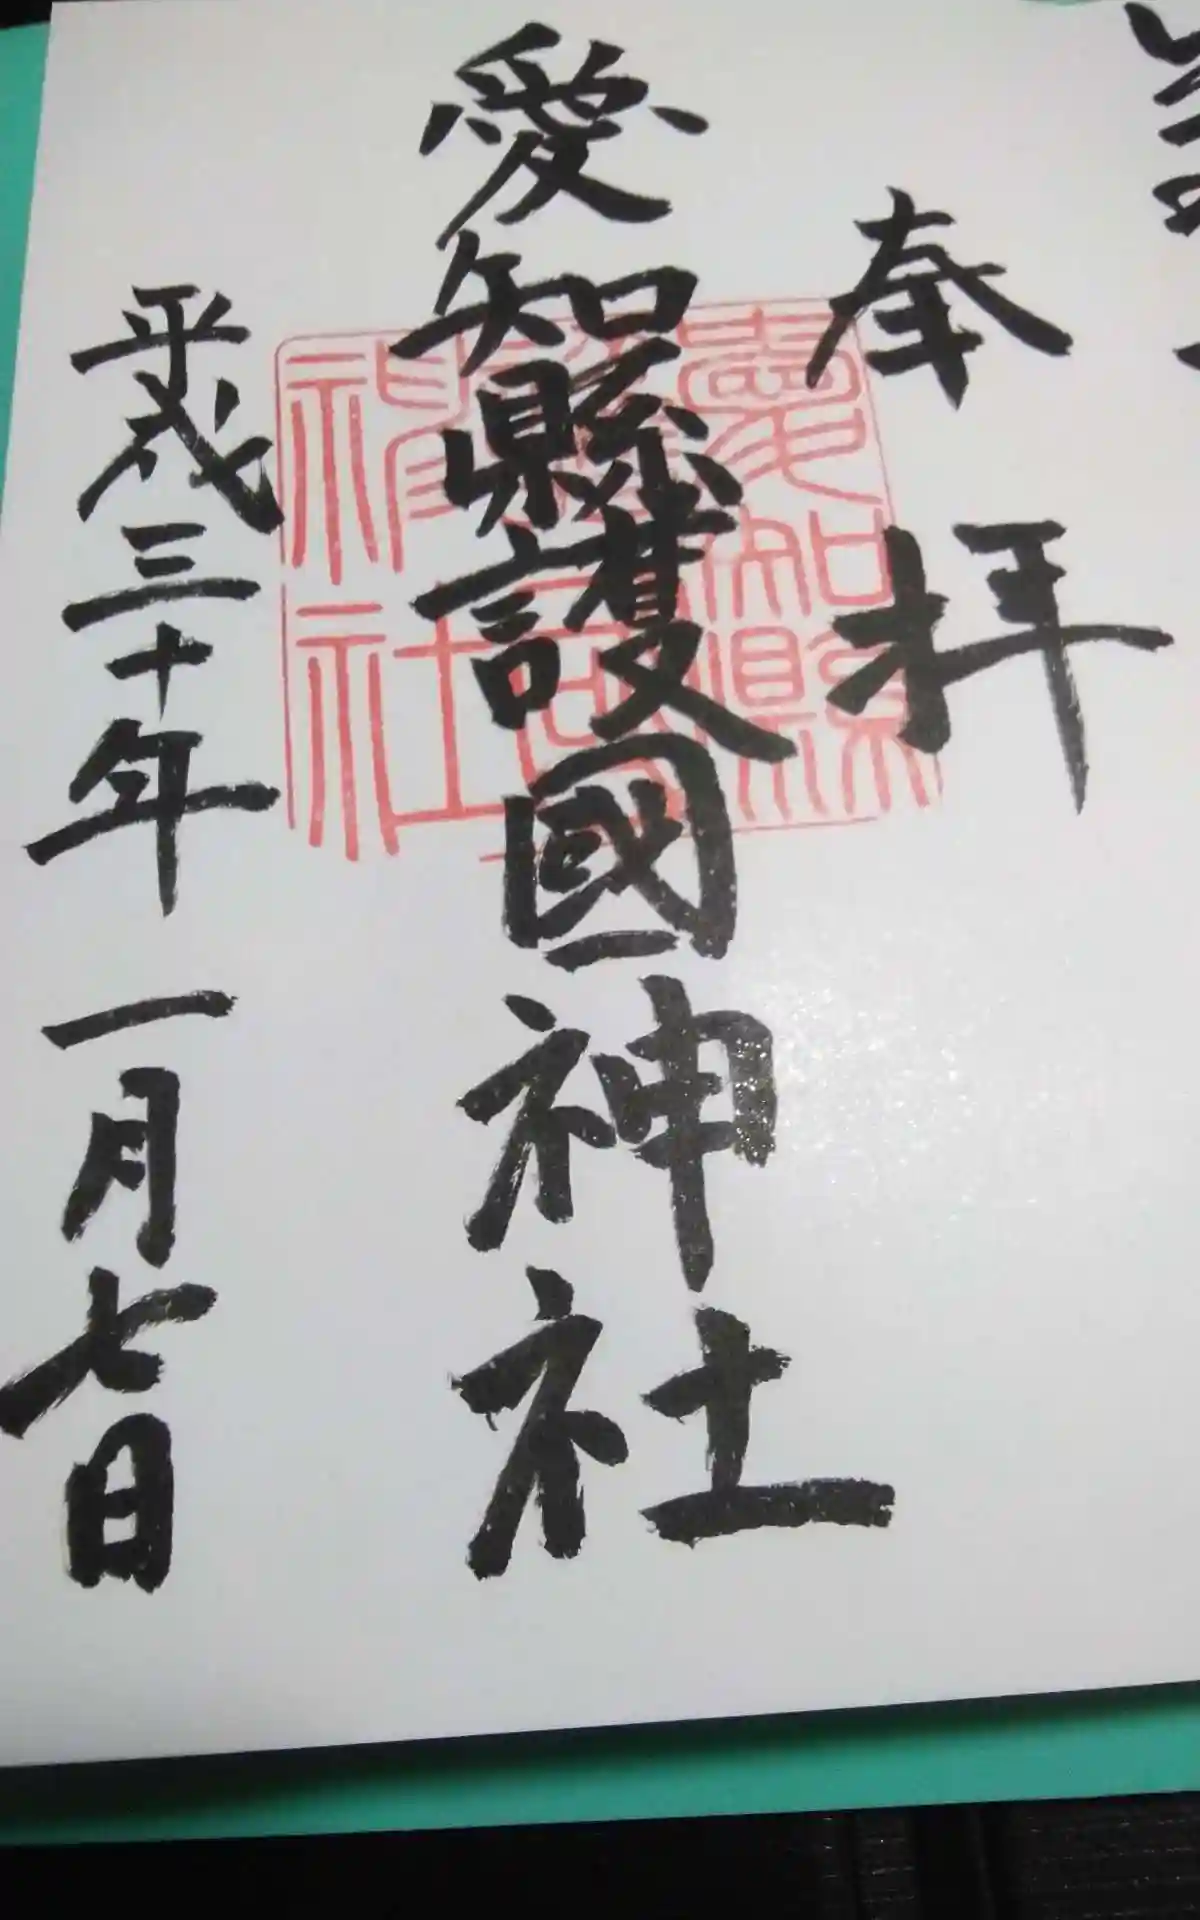 奉拝
愛知縣護國神社
平成三十年一月七日
愛知縣護國神社